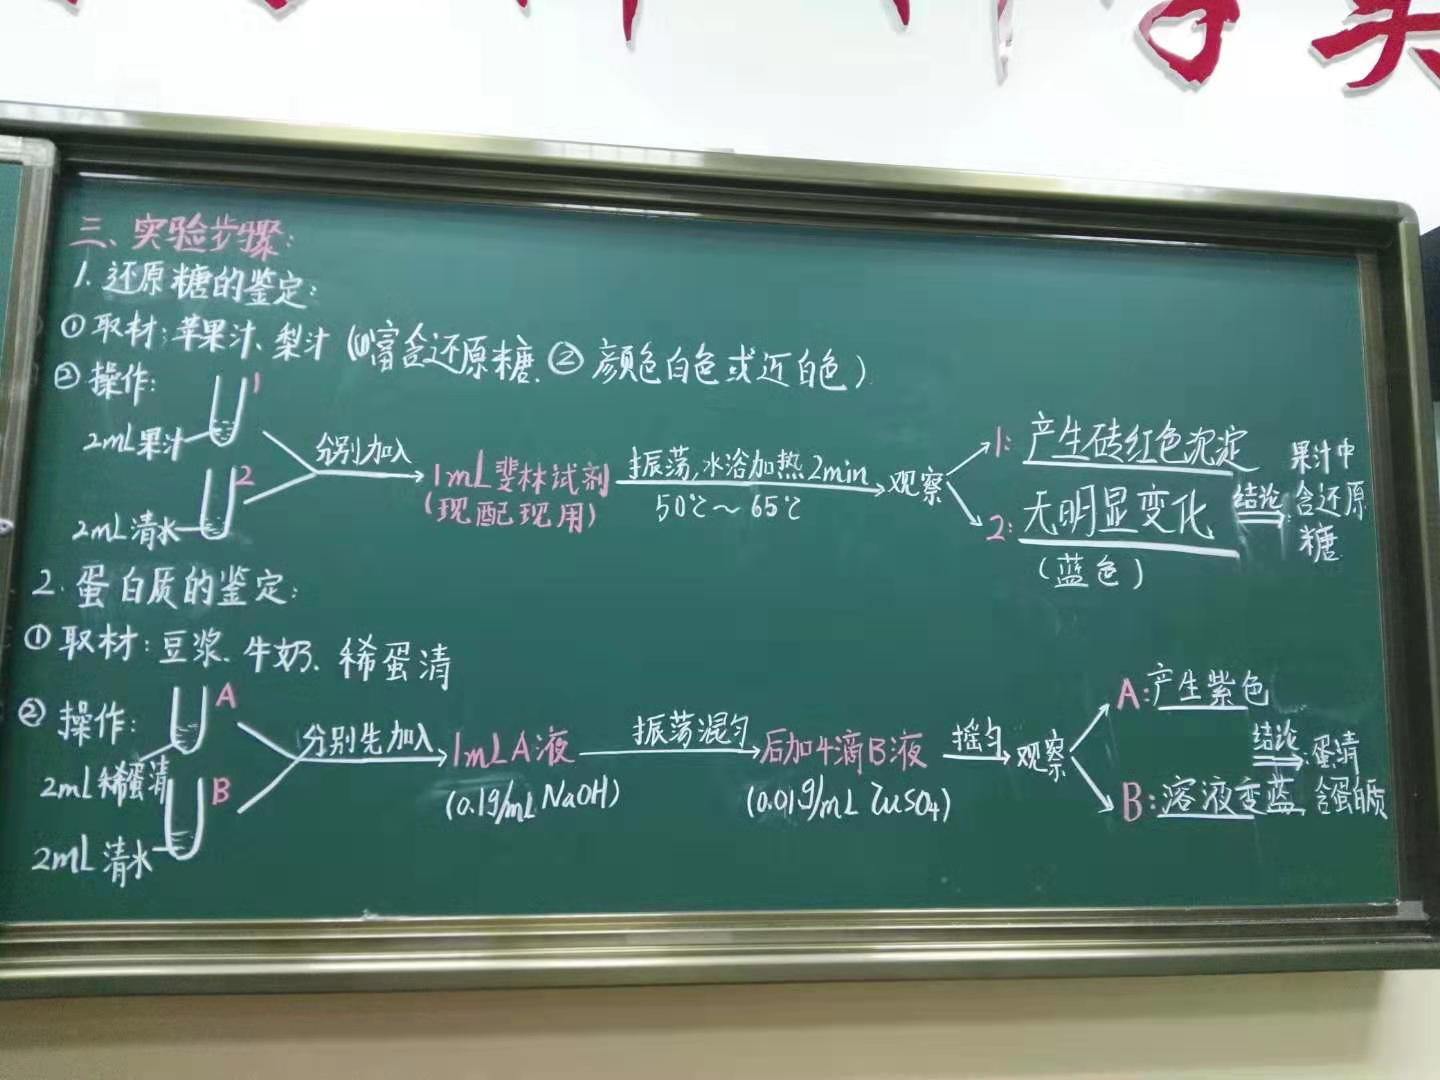 三、实验步骤:
1. 还原糖的鉴定:
①取材:苹果汁、梨汁(①富含还原糖.②颜色白色或近白色)
②操作:
1
2mL果汁
2
2mL清水
分别加入
1mL斐林试剂
(现配现用)
振荡,水浴加热2min
50℃～65℃
观察
1: 产生砖红色沉淀
2: 无明显变化
(蓝色)
结论
果汁中
含还原
糖
2. 蛋白质的鉴定:
①取材:豆浆、牛奶、稀蛋清
②操作:
A
2mL稀蛋清
B
2mL清水
分别先加入
1mLA液
(0.1g/mL NaOH)
振荡混匀
后加4滴B液
(0.01g/mL CuSO4)
摇匀
观察
A:产生紫色
B:溶液变蓝
结论
蛋清
含蛋白质